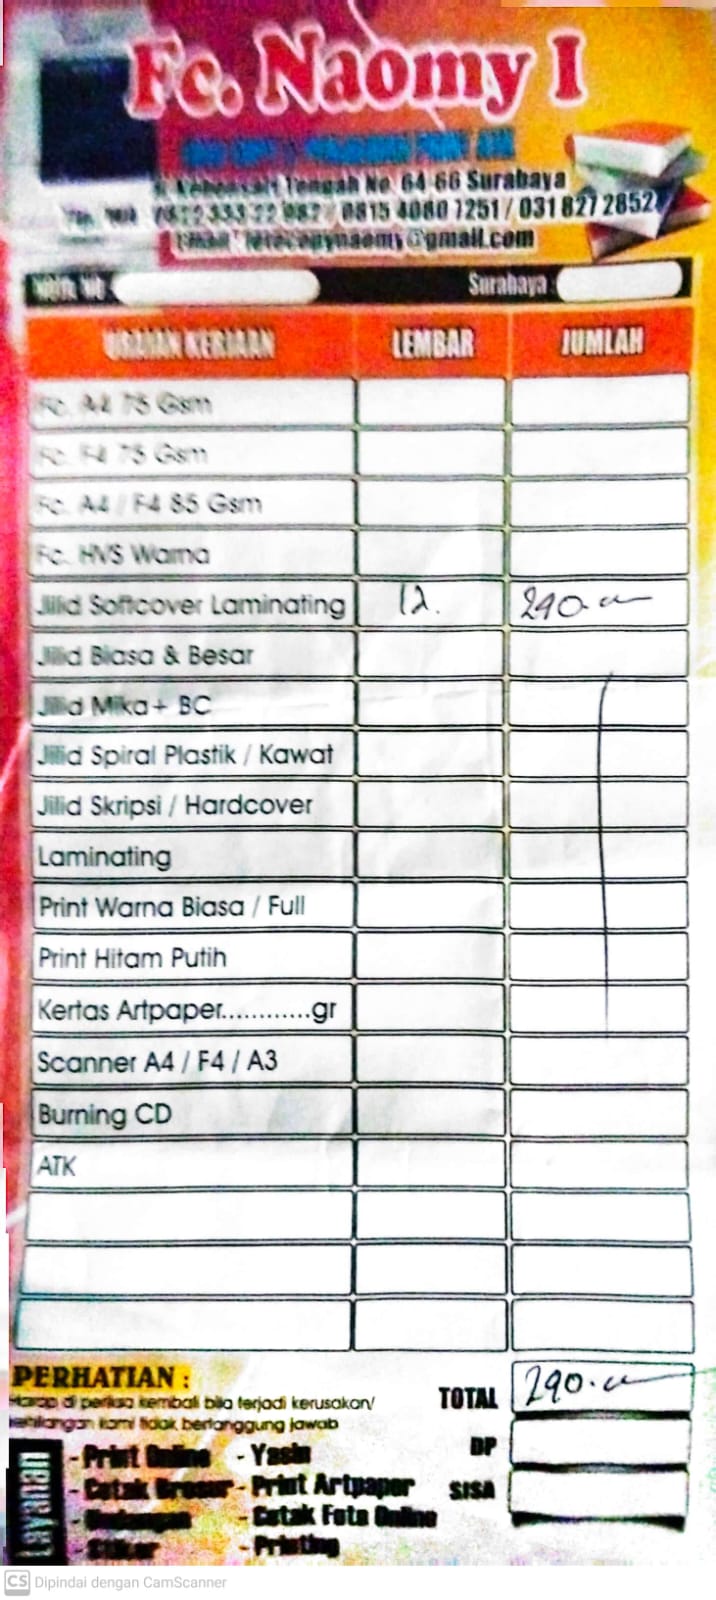 Fc. Naomy I
Kebonsari Tengah No. 64-66 Surabaya
0815 4060 7251 / 031 827 2852
Email : fotocopynaomy@gmail.com
Surabaya
URAIAN KERJAAN LEMBAR JUMLAH
Fc. A4 75 Gsm
Fc. F4 75 Gsm
Fc. A4 / F4 85 Gsm
Fc. HVS Warna
Jilid Softcover Laminating 12. 290.
Jilid Biasa & Besar
Jilid Mika + BC
Jilid Spiral Plastik / Kawat
Jilid Skripsi / Hardcover
Laminating
Print Warna Biasa / Full
Print Hitam Putih
Kertas Artpaper............gr
Scanner A4 / F4 / A3
Burning CD
ATK
PERHATIAN :
Harap di periksa kembali bila terjadi kerusakan/
kehilangan kami tidak bertanggung jawab
TOTAL 290.
DP
SISA
Layanan
- Print Online - Yasin
- Cetak Brosur - Print Artpaper
- Undangan - Cetak Foto Online
- Stiker - Printing
CS Dipindai dengan CamScanner